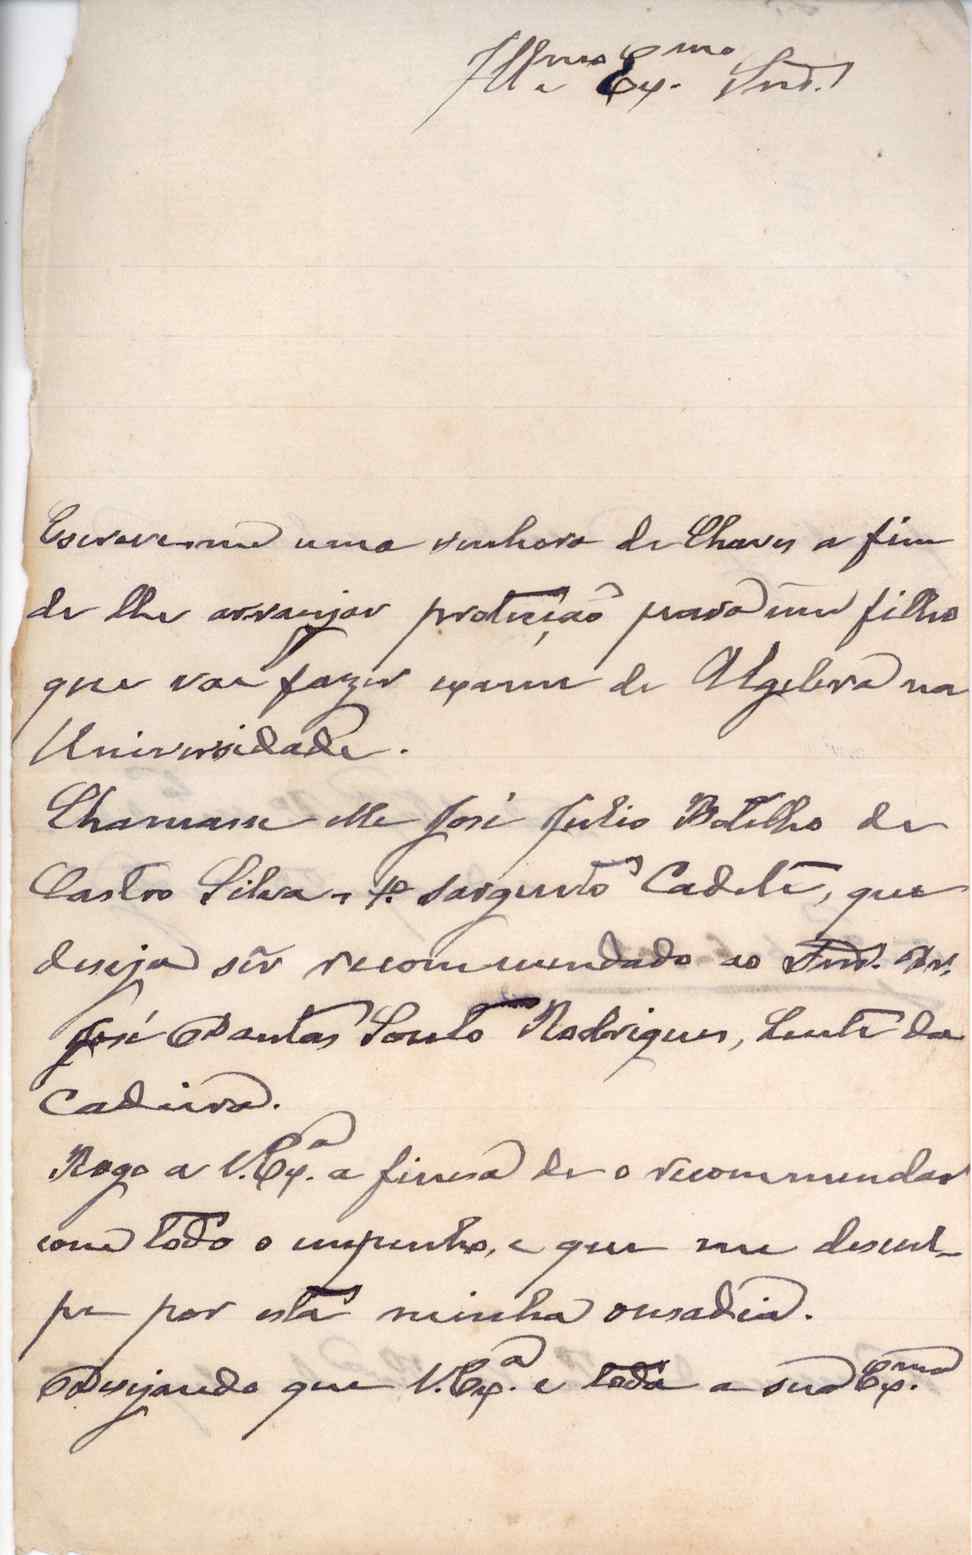 Ill.mo e Ex.mo Snr.
Escreve-me uma senhora de Chaves a fim
de lhe arranjar protecção para um filho
que vae fazer exame de Algebra na
Universidade.
Chamasse elle José Julio Botelho de
Castro Silva, 1º sargento Cadete, que
deseja sêr recommendado ao Snr. Dr.
José Dantas Souto Rodrigues, Lente da
Cadeira.
Rogo a V. Ex.a a finesa de o recommendar
com todo o empenho, e que me descul-
pe por esta minha ousadia.
Desejando que V. Ex.a e toda a sua Ex.ma